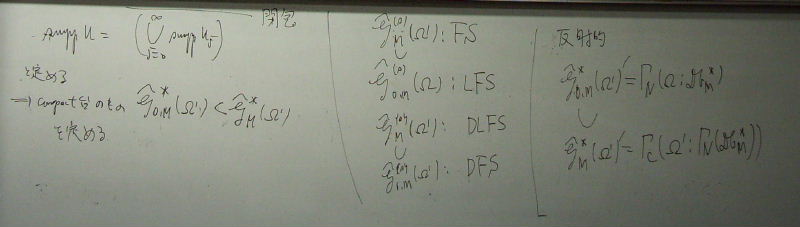 閉包
supp u = (∞⋃j=0 supp u_j)
と定める
⇒ compact台のもの ĝ*_{0,M}(Ω') < ĝ*_M(Ω')
を定める
ĝ^{(0)}_M(Ω'): FS
∪
ĝ^{(0)}_{0,M}(Ω): LFS
ĝ_M(Ω'): DLFS
∪
ĝ_{0,M}(Ω'): DFS
反射的
ĝ*_{0,M}(Ω')' = Γ_N(Ω: 𝒟b*_M)
∪
ĝ*_M(Ω')' = Γ_c(Ω': Γ_N(𝒟b*_M))